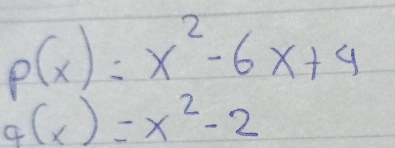 p(x) = x² - 6x + 9
q(x) = x² - 2